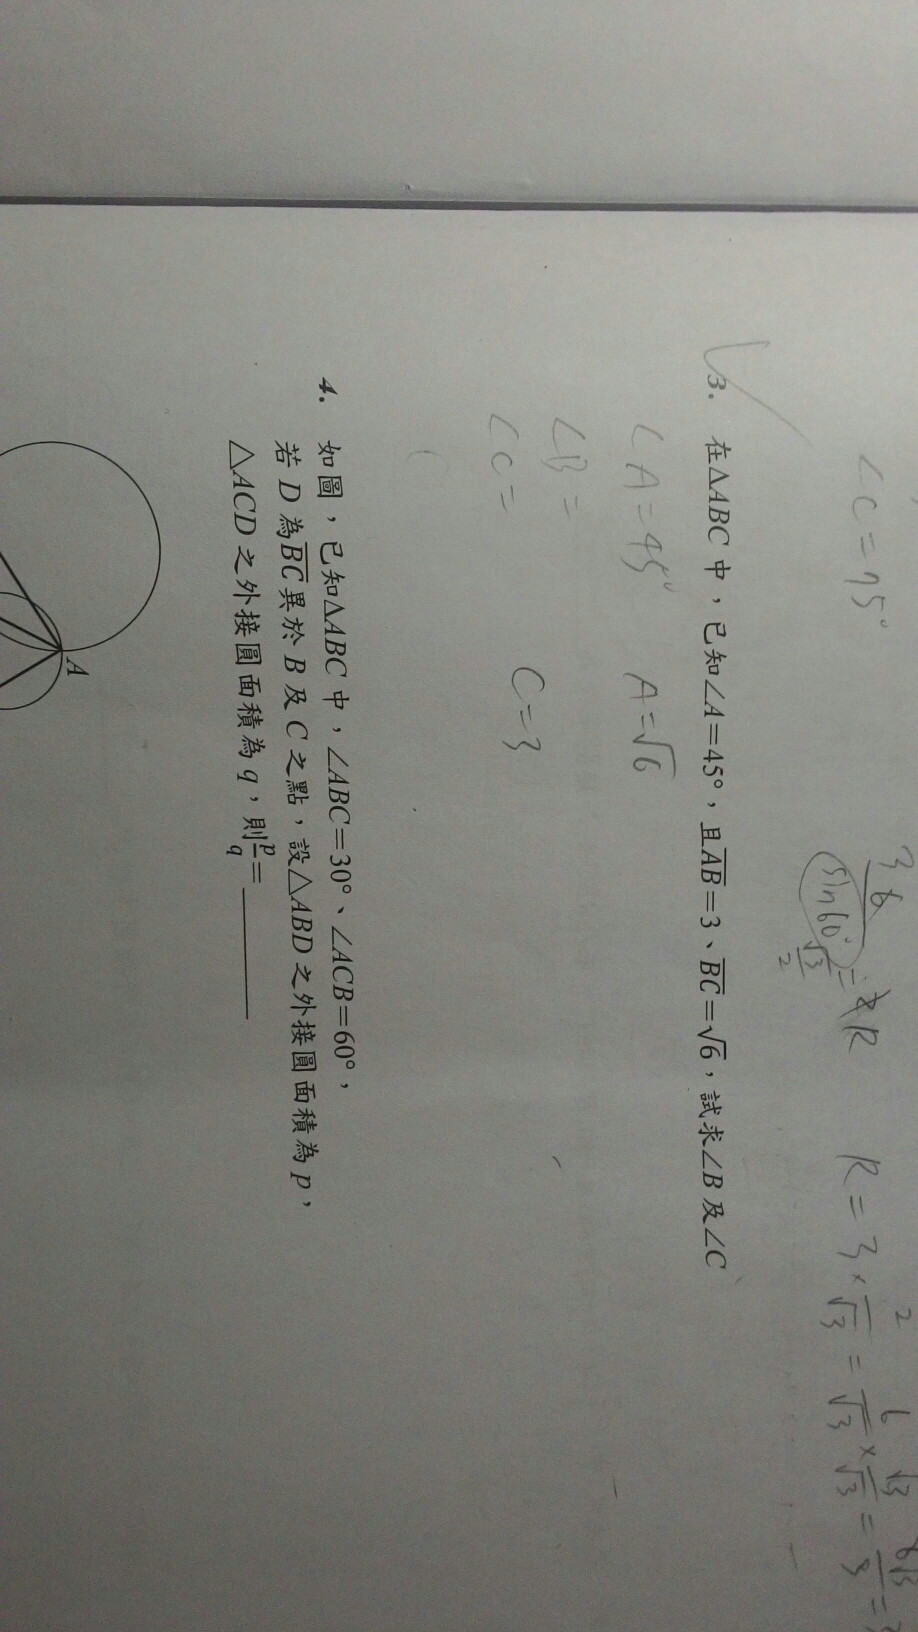 ∠C=75°
6/sin60°=2R
√3/2
3
R=3×2/√3=6/√3×√3/√3=6√3/3=
3. 在△ABC中,已知∠A=45°,且AB=3、BC=√6,試求∠B及∠C
∠A=45° A=√6
∠B=
∠C= C=3
4. 如圖,已知△ABC中,∠ABC=30°、∠ACB=60°,
若D為BC異於B及C之點,設△ABD之外接圓面積為p,
△ACD之外接圓面積為q,則p/q=______
A